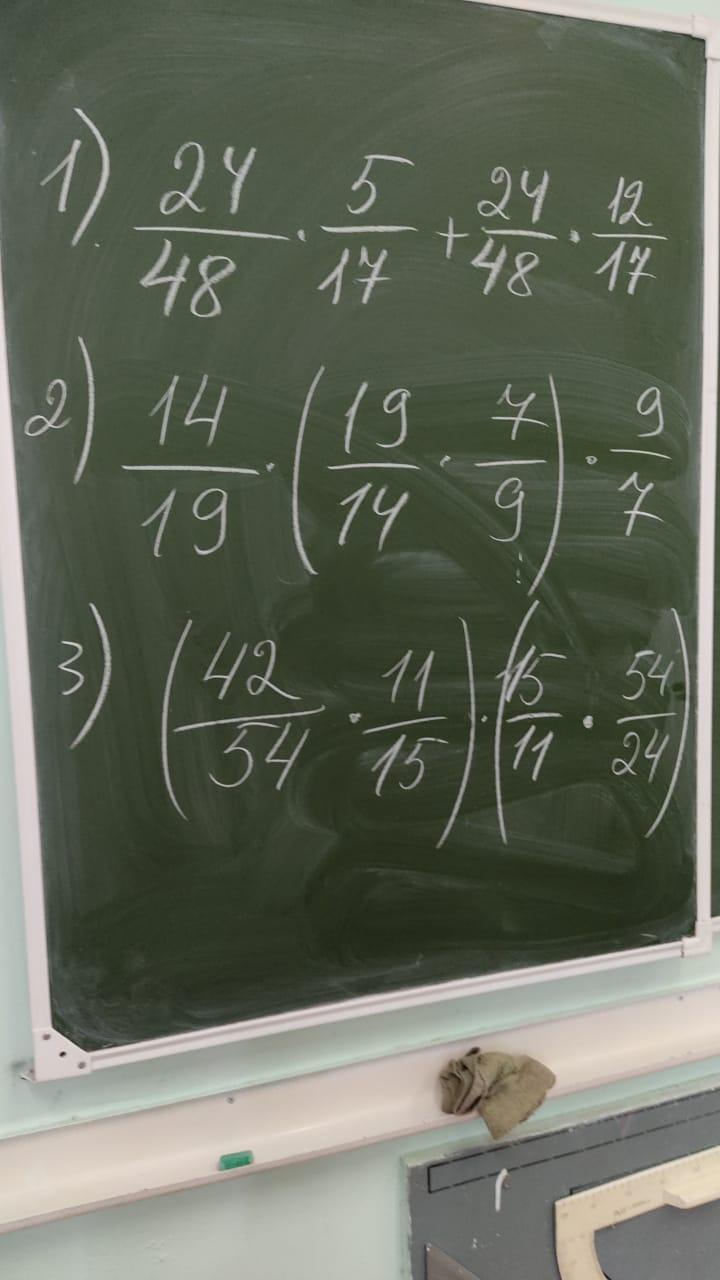 1) 24/48 · 5/17 + 24/48 · 12/17
2) 14/19 · (19/14 · 7/9) · 9/7
3) (42/54 · 11/15) · (15/11 · 54/24)